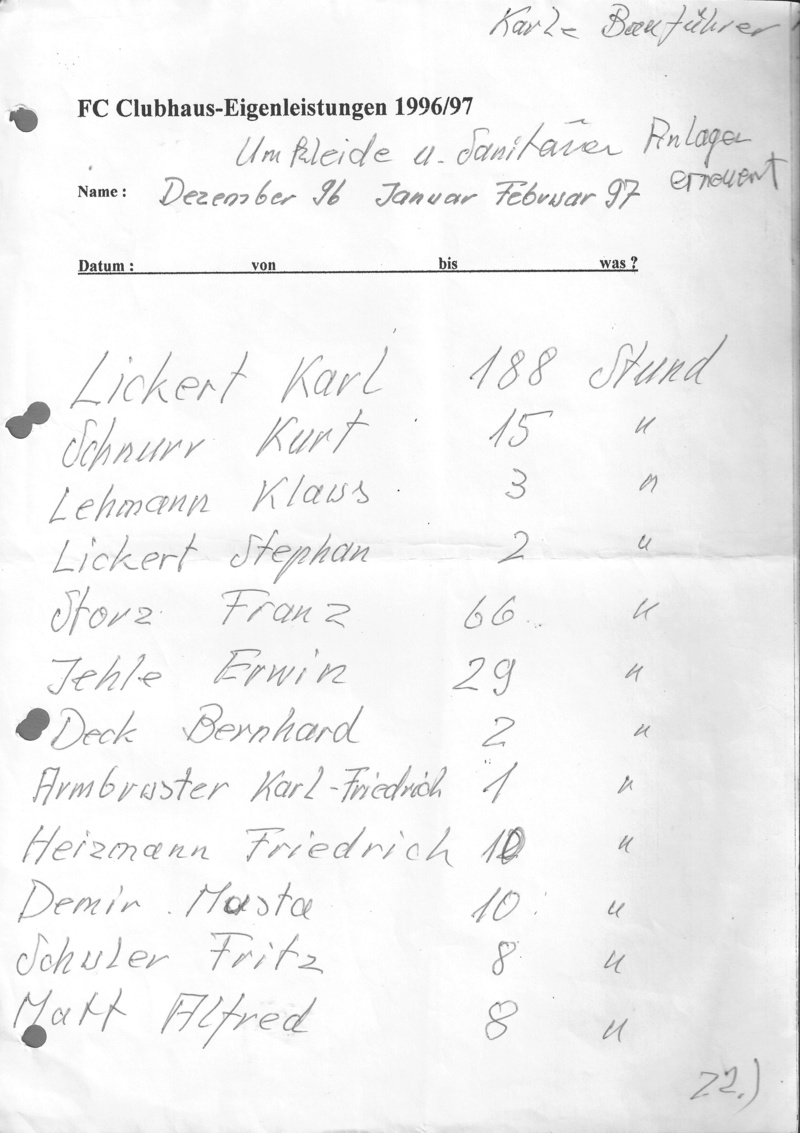 Karle Bauführer
FC Clubhaus-Eigenleistungen 1996/97
Umkleide u. Sanitären Anlagen
erneuert
Name : Dezember 96 Januar Februar 97
Datum : von bis was ?
Lickert Karl 188 Stund
Schnurr Kurt 15 "
Lehmann Klaus 3 "
Lickert Stephan 2 "
Storz Franz 66 "
Jehle Erwin 29 "
Deck Bernhard 2 "
Armbruster Karl-Friedrich 1 "
Heizmann Friedrich 10 "
Demir Musta 10 "
Schuler Fritz 8 "
Matt Alfred 8 "
22.)